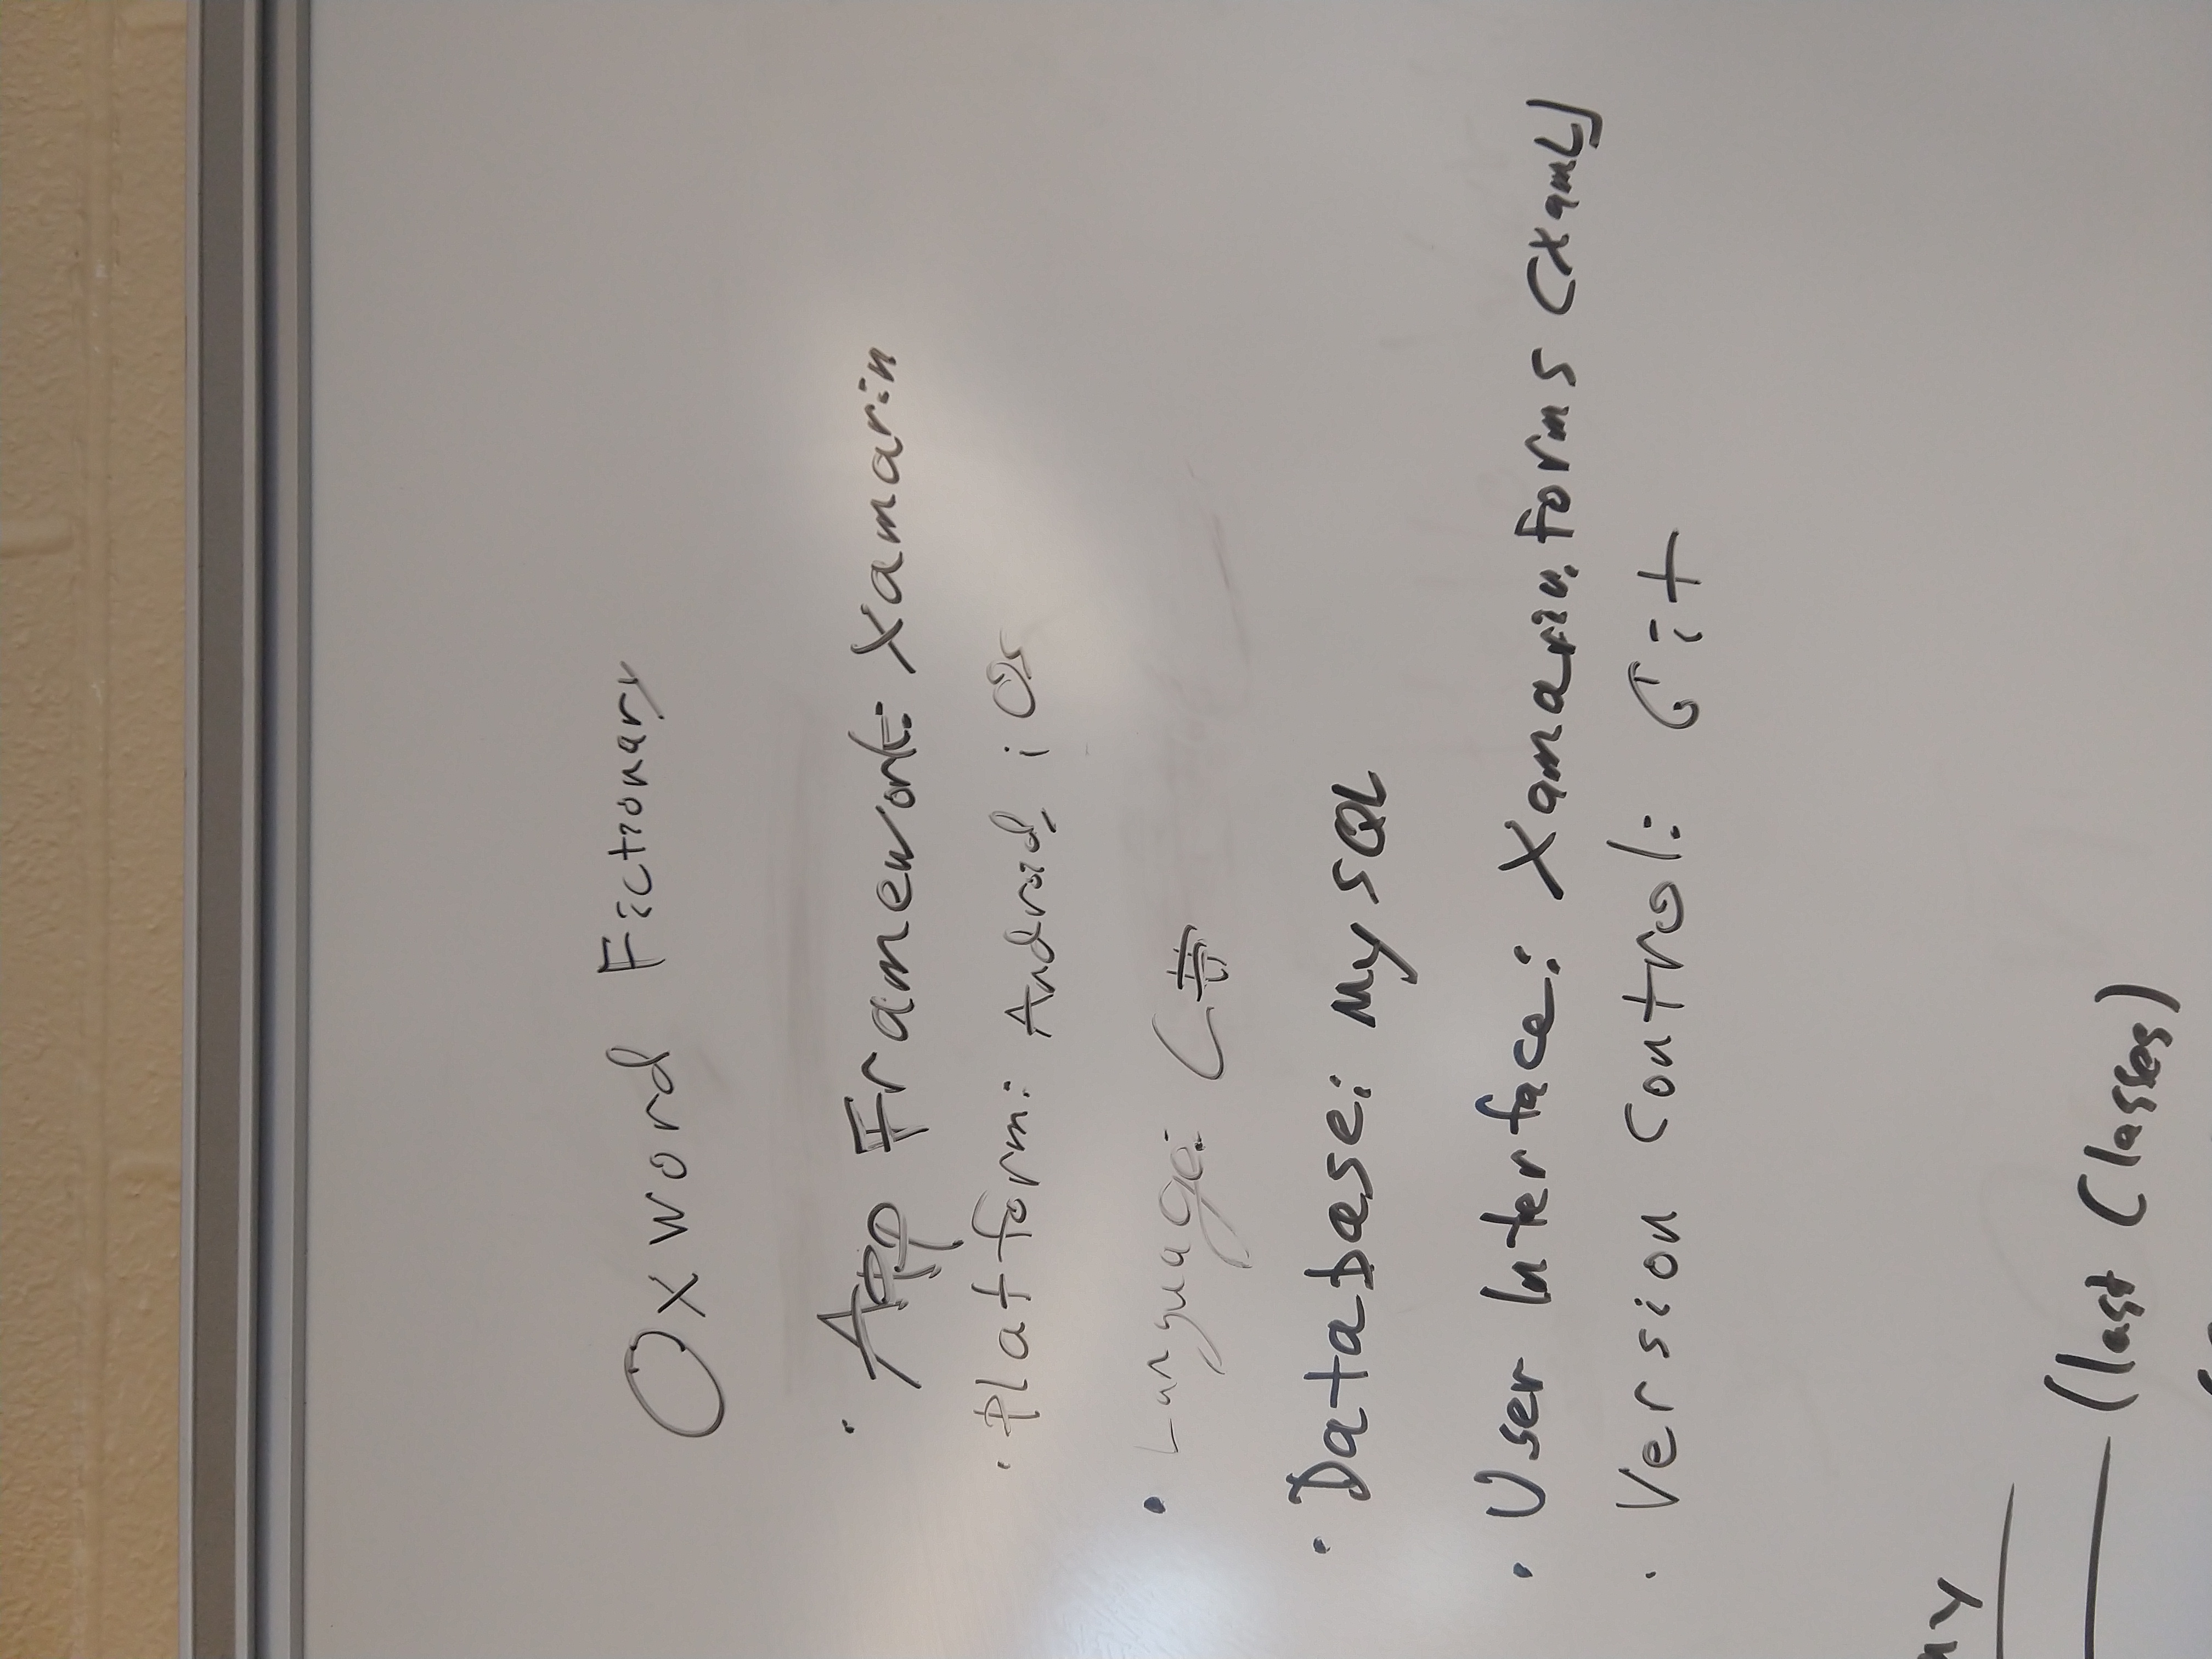 Oxword Fictionary
· App Framework: Xamarin
· Platform: Android, iOS
· Language: C#
· Database: MySQL
· User Interface: Xamarin.Forms (XamL)
· Version Control: Git
ny
(last Classes)